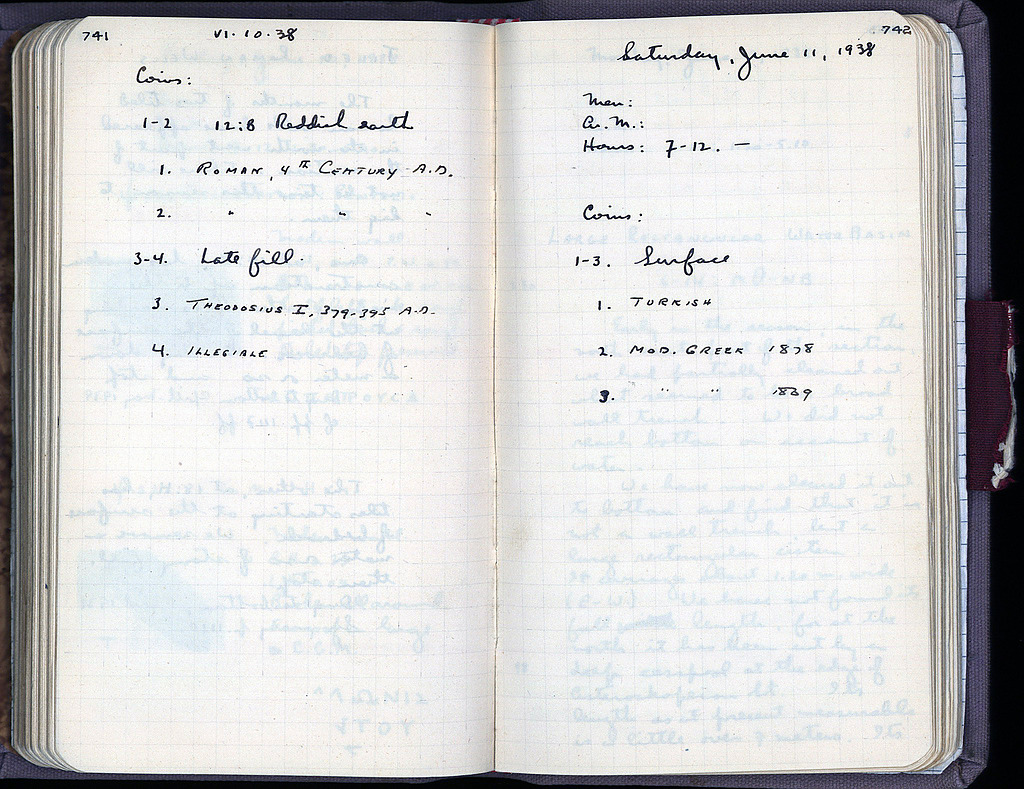 741 VI·10·38
Coins:
1-2 12:B Reddish earth
1. ROMAN, 4TH CENTURY A.D.
2. " " "
3-4. Late fill.
3. THEODOSIUS I, 379-395 A.D.
4. ILLEGIBLE
742
Saturday, June 11, 1938
Men:
Hours: 7-12. —
Coins:
1-3. Surface
1. TURKISH
2. MOD. GREEK 1878
3. " "